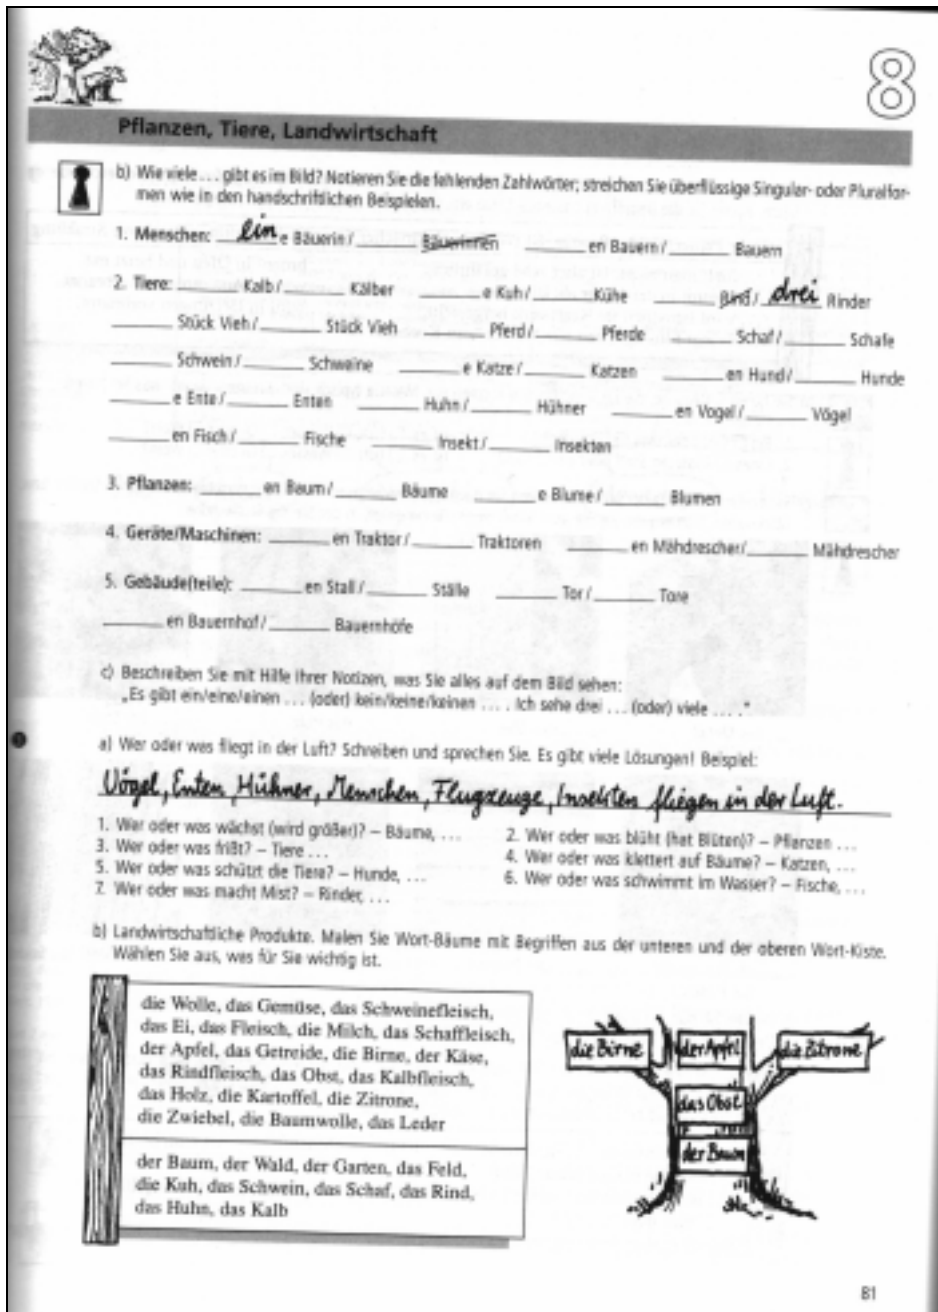 8
Pflanzen, Tiere, Landwirtschaft
b) Wie viele ... gibt es im Bild? Notieren Sie die fehlenden Zahlwörter; streichen Sie überflüssige Singular- oder Pluralfor-
men wie in den handschriftlichen Beispielen.
1. Menschen: ein e Bäuerin / ______ Bäuerinnen ______ en Bauern / ______ Bauern
2. Tiere: ______ Kalb / ______ Kälber ______ e Kuh / ______ Kühe ______ Rind / drei Rinder
______ Stück Vieh / ______ Stück Vieh ______ Pferd / ______ Pferde ______ Schaf / ______ Schafe
______ Schwein / ______ Schweine ______ e Katze / ______ Katzen ______ en Hund / ______ Hunde
______ e Ente / ______ Enten ______ Huhn / ______ Hühner ______ en Vogel / ______ Vögel
______ en Fisch / ______ Fische ______ Insekt / ______ Insekten
3. Pflanzen: ______ en Baum / ______ Bäume ______ e Blume / ______ Blumen
4. Geräte/Maschinen: ______ en Traktor / ______ Traktoren ______ en Mähdrescher / ______ Mähdrescher
5. Gebäude(teile): ______ en Stall / ______ Ställe ______ Tor / ______ Tore
______ en Bauernhof / ______ Bauernhöfe
c) Beschreiben Sie mit Hilfe Ihrer Notizen, was Sie alles auf dem Bild sehen:
„Es gibt ein/eine/einen ... (oder) kein/keine/keinen .... Ich sehe drei ... (oder) viele ...."
a) Wer oder was fliegt in der Luft? Schreiben und sprechen Sie. Es gibt viele Lösungen! Beispiel:
Vögel, Enten, Hühner, Menschen, Flugzeuge, Insekten fliegen in der Luft.
1. Wer oder was wächst (wird größer)? – Bäume, ... 2. Wer oder was blüht (hat Blüten)? – Pflanzen ...
3. Wer oder was frißt? – Tiere ... 4. Wer oder was klettert auf Bäume? – Katzen, ...
5. Wer oder was schützt die Tiere? – Hunde, ... 6. Wer oder was schwimmt im Wasser? – Fische, ...
7. Wer oder was macht Mist? – Rinder, ...
b) Landwirtschaftliche Produkte. Malen Sie Wort-Bäume mit Begriffen aus der unteren und der oberen Wort-Kiste.
Wählen Sie aus, was für Sie wichtig ist.
die Wolle, das Gemüse, das Schweinefleisch,
das Ei, das Fleisch, die Milch, das Schaffleisch,
der Apfel, das Getreide, die Birne, der Käse,
das Rindfleisch, das Obst, das Kalbfleisch,
das Holz, die Kartoffel, die Zitrone,
die Zwiebel, die Baumwolle, das Leder
der Baum, der Wald, der Garten, das Feld,
die Kuh, das Schwein, das Schaf, das Rind,
das Huhn, das Kalb
die Birne der Apfel die Zitrone
das Obst
der Baum
81